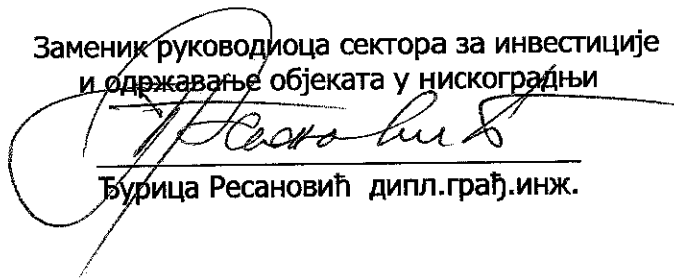 Заменик руководиоца сектора за инвестиције
и одржавање објеката у нискоградњи
Ђурица Ресановић дипл.грађ.инж.